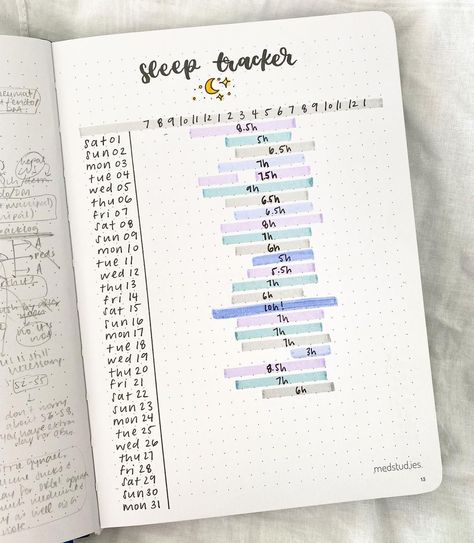 sleep tracker
7 8 9 10 11 12 1 2 3 4 5 6 7 8 9 10 11 12 1
sat 01 8.5h
sun 02 5h
mon 03 6.5h
tue 04 7h
wed 05 7.5h
thu 06 9h
fri 07 6.5h
sat 08 6.5h
sun 09 8h
mon 10 7h
tue 11 6h
wed 12 5h
thu 13 5.5h
fri 14 7h
sat 15 6h
sun 16 10h!
mon 17 7h
tue 18 7h
wed 19 7h
thu 20 3h
fri 21 8.5h
sat 22 7h
sun 23 6h
mon 24
tue 25
wed 26
thu 27
fri 28
sat 29
sun 30
mon 31
medstudjes.
13
is still
necessary.
don't worry
about 56-58,
you have extra
day for